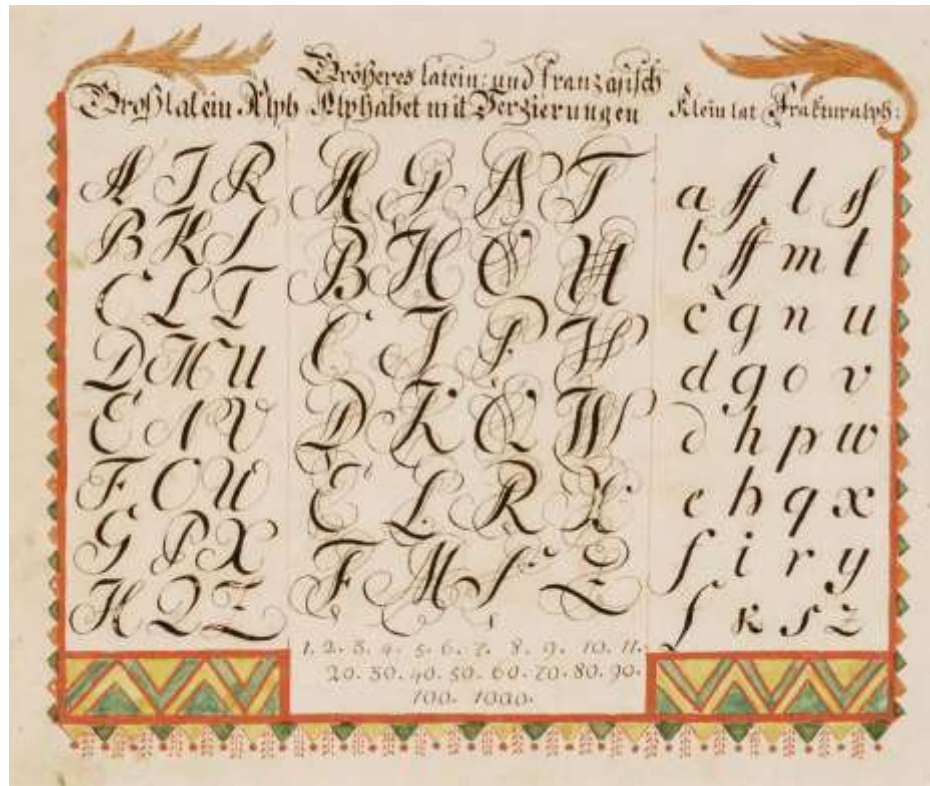 Großlatein Alph
A I R
B K S
C L T
D M U
E N V
F O W
G P X
H Q Z
Größeres latein: und französisch
Alphabet mit Verzierungen
A G N T
B H O U
C I P V
D K Q W
E L R X
F M S Z
1. 2. 3. 4. 5. 6. 7. 8. 9. 10. 11.
20. 30. 40. 50. 60. 70. 80. 90.
100. 1000.
Klein lat Frakturalph:
a ff l
b ff m t
c g n u
d g o v
d h p w
e h q x
f i r y
k s z